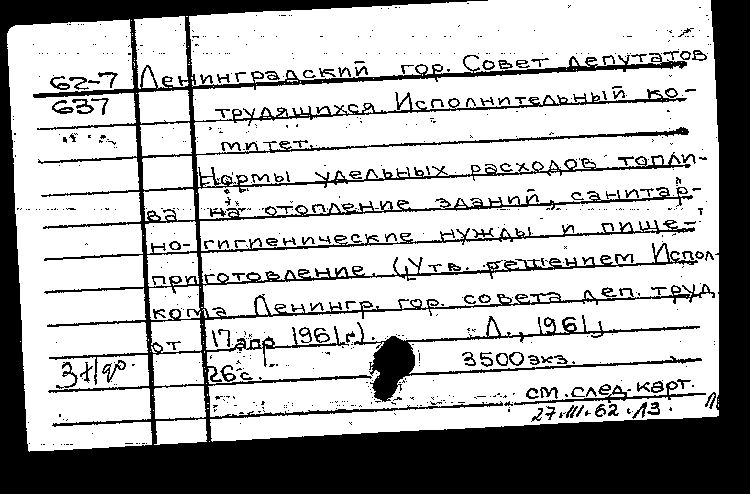 62-7 Ленинградский гор. Совет депутатов
637 трудящихся. Исполнительный ко-
митет.
Нормы удельных расходов топли-
ва на отопление зданий, санитар-
но-гигиенические нужды и пище-
приготовление. (Утв. решением Испол-
кома Ленингр. гор. совета деп. труд.
от 17 апр 1961 г.). Л., 1961
26 с. 3500 экз.
см. след. карт.
27.III.62.